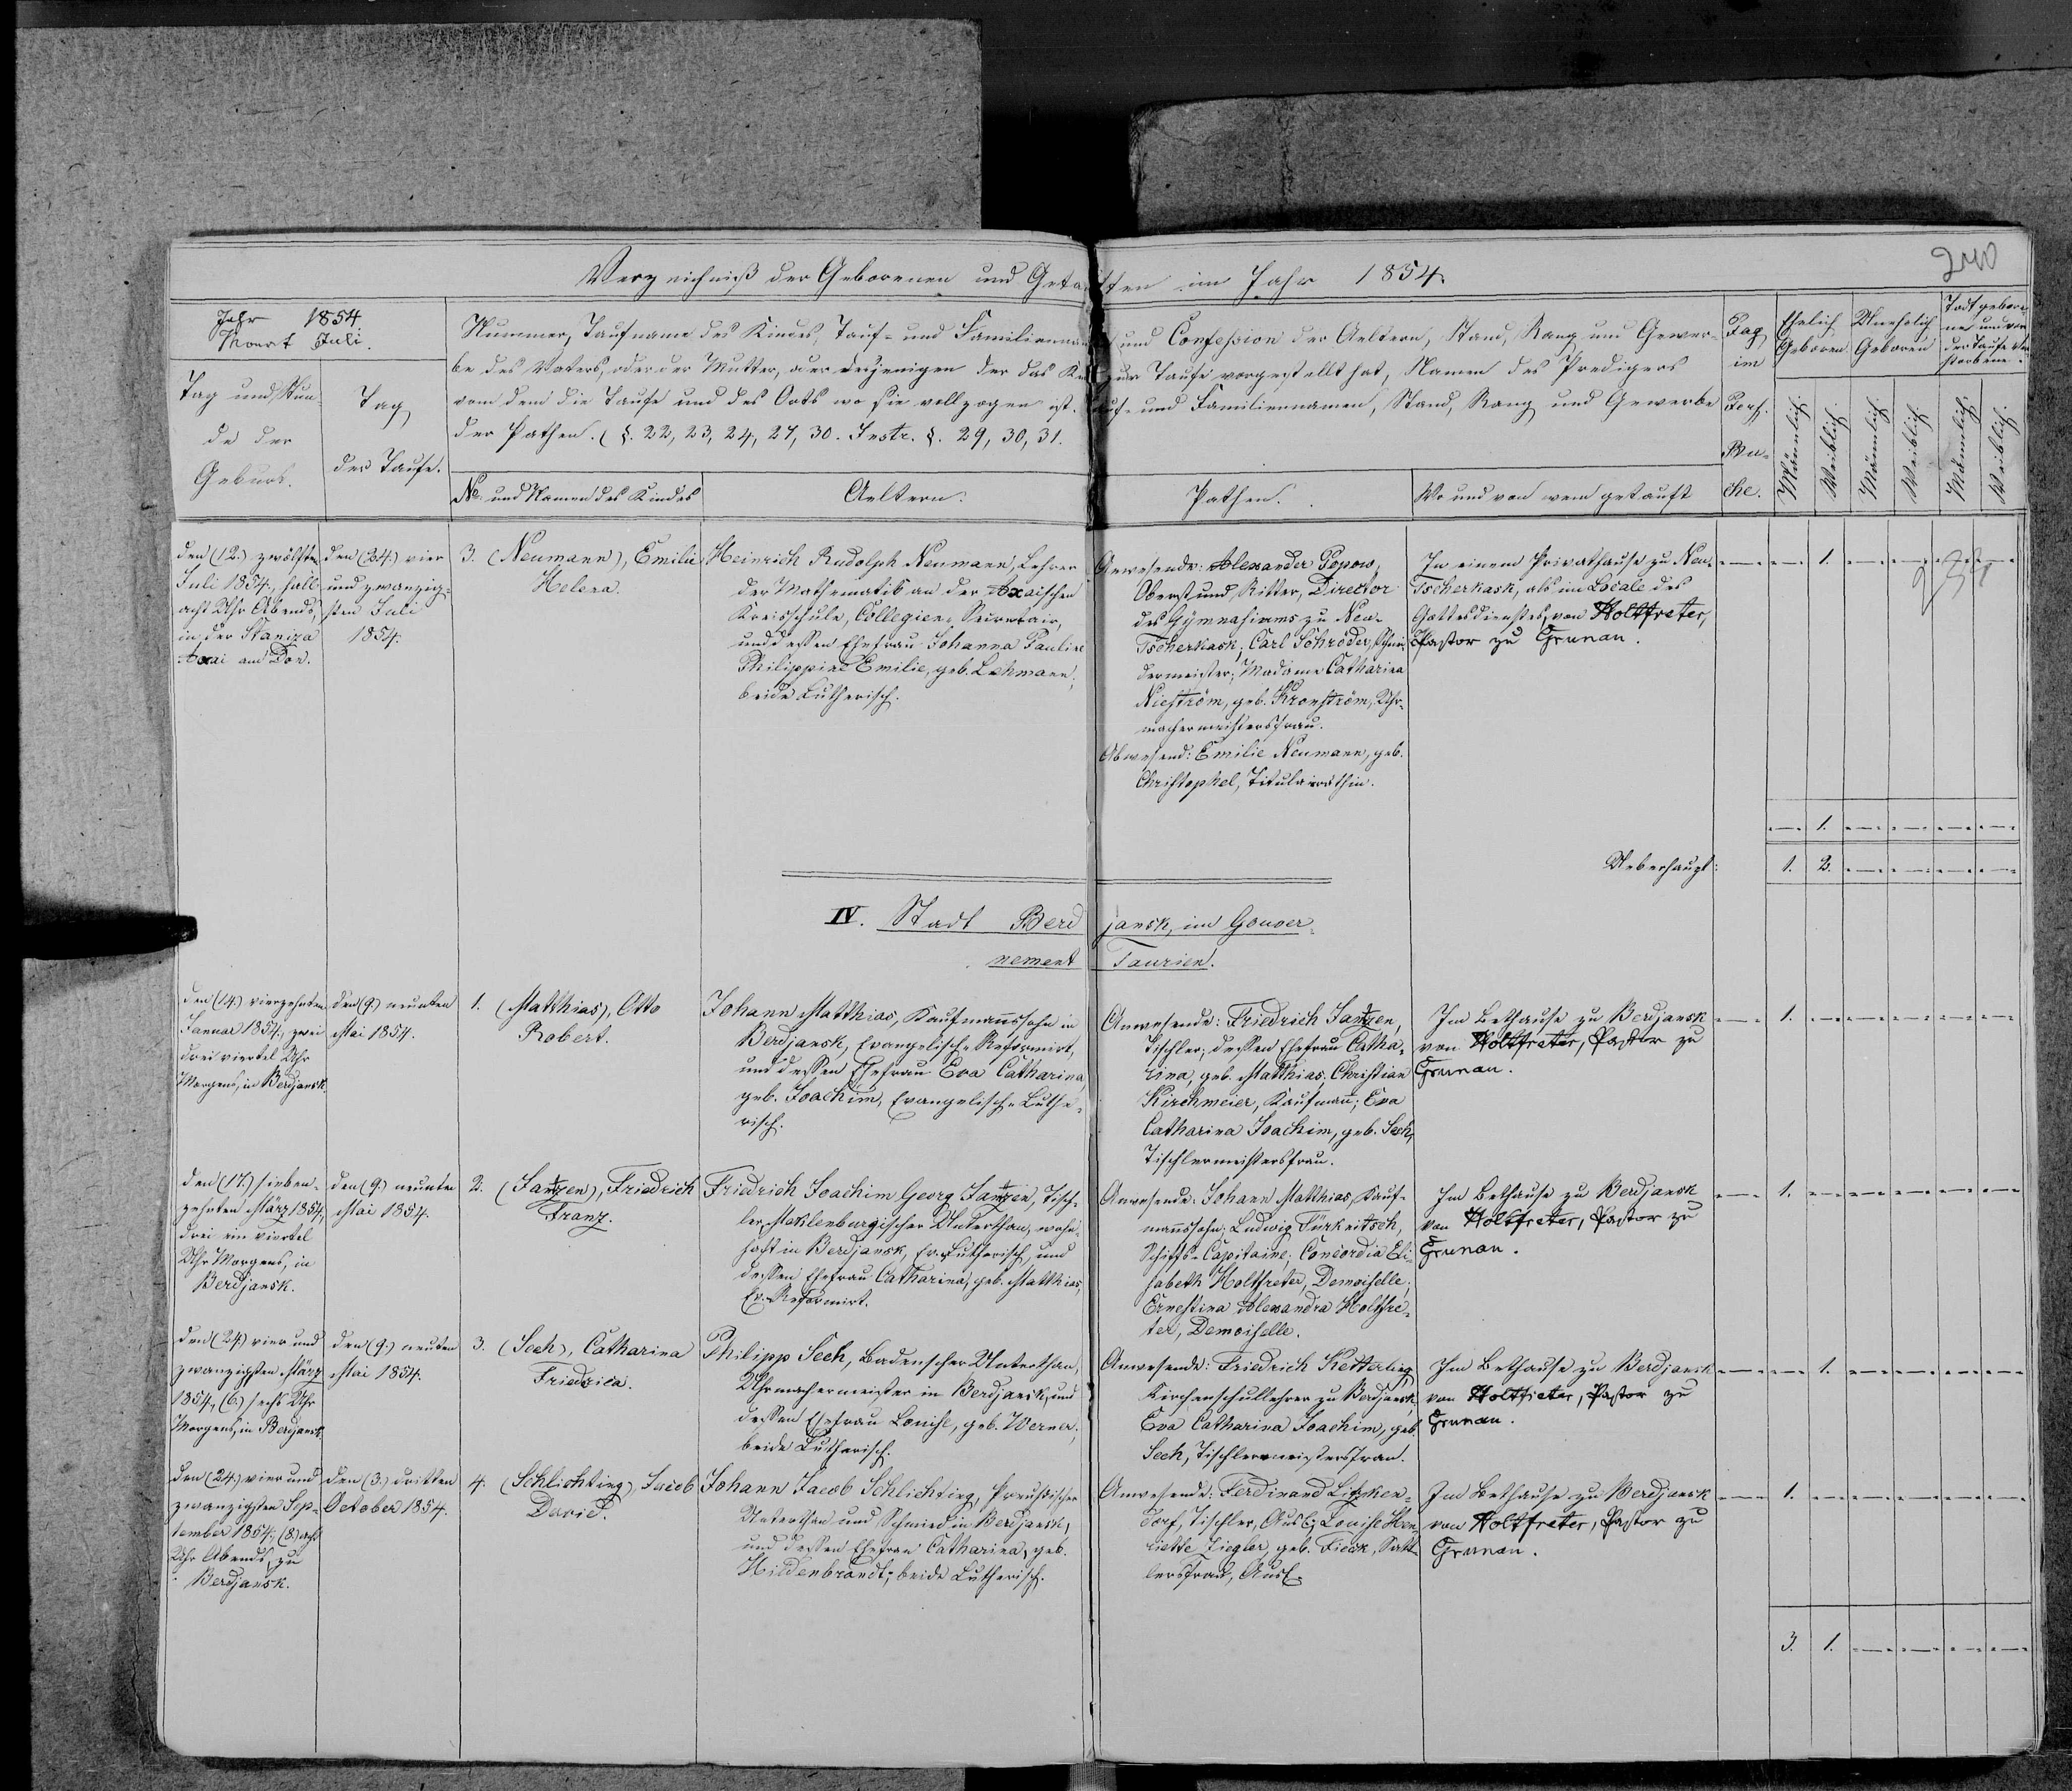 240
Verzeichniß der Geborenen und Getauften im Jahr 1854.
Jahr 1854.
Monat Juli.
Tag und Stun-
de der
Geburt.
Tag
der Taufe.
Nummer, Taufname des Kindes, Tauf- und Familiennamen und Confession der Aeltern, Stand, Rang und Gewer-
be des Vaters, oder der Mutter, oder desjenigen der das Kind zur Taufe vorgestellt hat, Namen des Predigers
von dem die Taufe und des Orts wo sie vollzogen ist. Tauf- und Familiennamen, Stand, Rang und Gewerbe
der Pathen. (§. 22, 23, 24, 27, 30. Instr. §. 29, 30, 31.
No. und Namen des Kindes
Aeltern.
Pathen.
Wo und von wem getauft
Pag
im
Pers.
Bu-
che.
Ehelich
Geboren
Unehelich
Geboren
Todtgebore-
ne und vor
der Taufe Ver-
storbene.
Männlich.
Weiblich.
Männlich.
Weiblich.
Männlich.
Weiblich.
den (12.) zwölften
Juli 1854, halb
acht Uhr Abends,
in der Staniza
Axai am Don.
den (24.) vier
und zwanzig-
sten Juli
1854.
3. (Neumann), Emilie
Helena.
Heinrich Rudolph Neumann, Lehrer
der Mathematik an der Axaischen
Kreisschule, Collegien-Secretair,
und dessen Ehefrau Johanna Pauline
Philippine Emilie, geb. Lehmann,
beide Lutherisch.
Anwesende: Alexander Popow,
Oberst und Ritter, Director
des Gymnasiums zu Neu-
Tscherkask; Carl Schröder, Schnei-
dermeister; Madame Catharina
Nieström, geb. Kronström, Uhr-
machermeistersfrau.
Abwesend: Emilie Neumann, geb.
Christophel, Titulairräthin.
In einem Privathause zu Neu-
Tscherkask, als im Locale des
Gottesdienstes, von Holtfreter,
Pastor zu Grunau.
1.
1.
Ueberhaupt: 1. 2.
IV. Stadt Berdjansk, im Gouver-
nement Taurien.
den (14.) vierzehnten
Januar 1854, zwei
drei viertel Uhr
Morgens, in Berdjansk.
den (9.) neunten
Mai 1854.
1. (Matthias), Otto
Robert.
Johann Matthias, Kaufmannssohn in
Berdjansk, Evangelisch-Reformirt,
und dessen Ehefrau Eva Catharina,
geb. Joachim, Evangelisch-Luthe-
risch.
Anwesende: Friedrich Jantzen,
Tischler; dessen Ehefrau Catha-
rina, geb. Matthias; Christian
Kirchmeier, Kaufmann; Eva
Catharina Joachim, geb. Sech,
Tischlermeistersfrau.
Im Bethause zu Berdjansk
von Holtfreter, Pastor zu
Grunau.
1.
den (17.) sieben-
zehnten März 1854,
drei ein viertel
Uhr Morgens, in
Berdjansk.
den (9.) neunten
Mai 1854.
2. (Jantzen), Friedrich
Franz.
Friedrich Joachim Georg Jantzen, Tisch-
ler, Meklenburgischer Unterthan, wohn-
haft in Berdjansk, Ev. Lutherisch, und
dessen Ehefrau Catharina, geb. Matthias,
Ev. Reformirt.
Anwesende: Johann Matthias, Kauf-
mannssohn; Ludwig Türkeitsch,
Schiffs-Capitaine; Concordia Eli-
sabeth Holtfreter, Demoiselle;
Ernestina Alexandra Holtfre-
ter, Demoiselle.
Im Bethause zu Berdjansk
von Holtfreter, Pastor zu
Grunau.
1.
den (24.) vier und
zwanzigsten März
1854, (6.) sechs Uhr
Morgens, in Berdjansk.
den (9.) neunten
Mai 1854.
3. (Sech), Catharina
Friedrica.
Philipp Sech, Badenscher Unterthan,
Uhrmachermeister in Berdjansk, und
dessen Ehefrau Louise, geb. Werner,
beide Lutherisch.
Anwesende: Friedrich Ketterling,
Kirchenschullehrer zu Berdjansk;
Eva Catharina Joachim, geb.
Sech, Tischlermeistersfrau.
Im Bethause zu Berdjansk
von Holtfreter, Pastor zu
Grunau.
1.
den (24.) vier und
zwanzigsten Sep-
tember 1854, (8.) acht
Uhr Abends, zu
Berdjansk.
den (3.) dritten
October 1854.
4. (Schlichting), Jacob
David.
Johann Jacob Schlichting, Preußischer
Unterthan und Schmied in Berdjansk,
und dessen Ehefrau Catharina, geb.
Hildenbrandt; beide Lutherisch.
Anwesende: Ferdinand Litzken-
dorf, Tischler, Ausl.; Louise Hen-
riette Ziegler, geb. Fieck, Satt-
lersfrau, Ausl.
Im Bethause zu Berdjansk
von Holtfreter, Pastor zu
Grunau.
1.
3. 1.